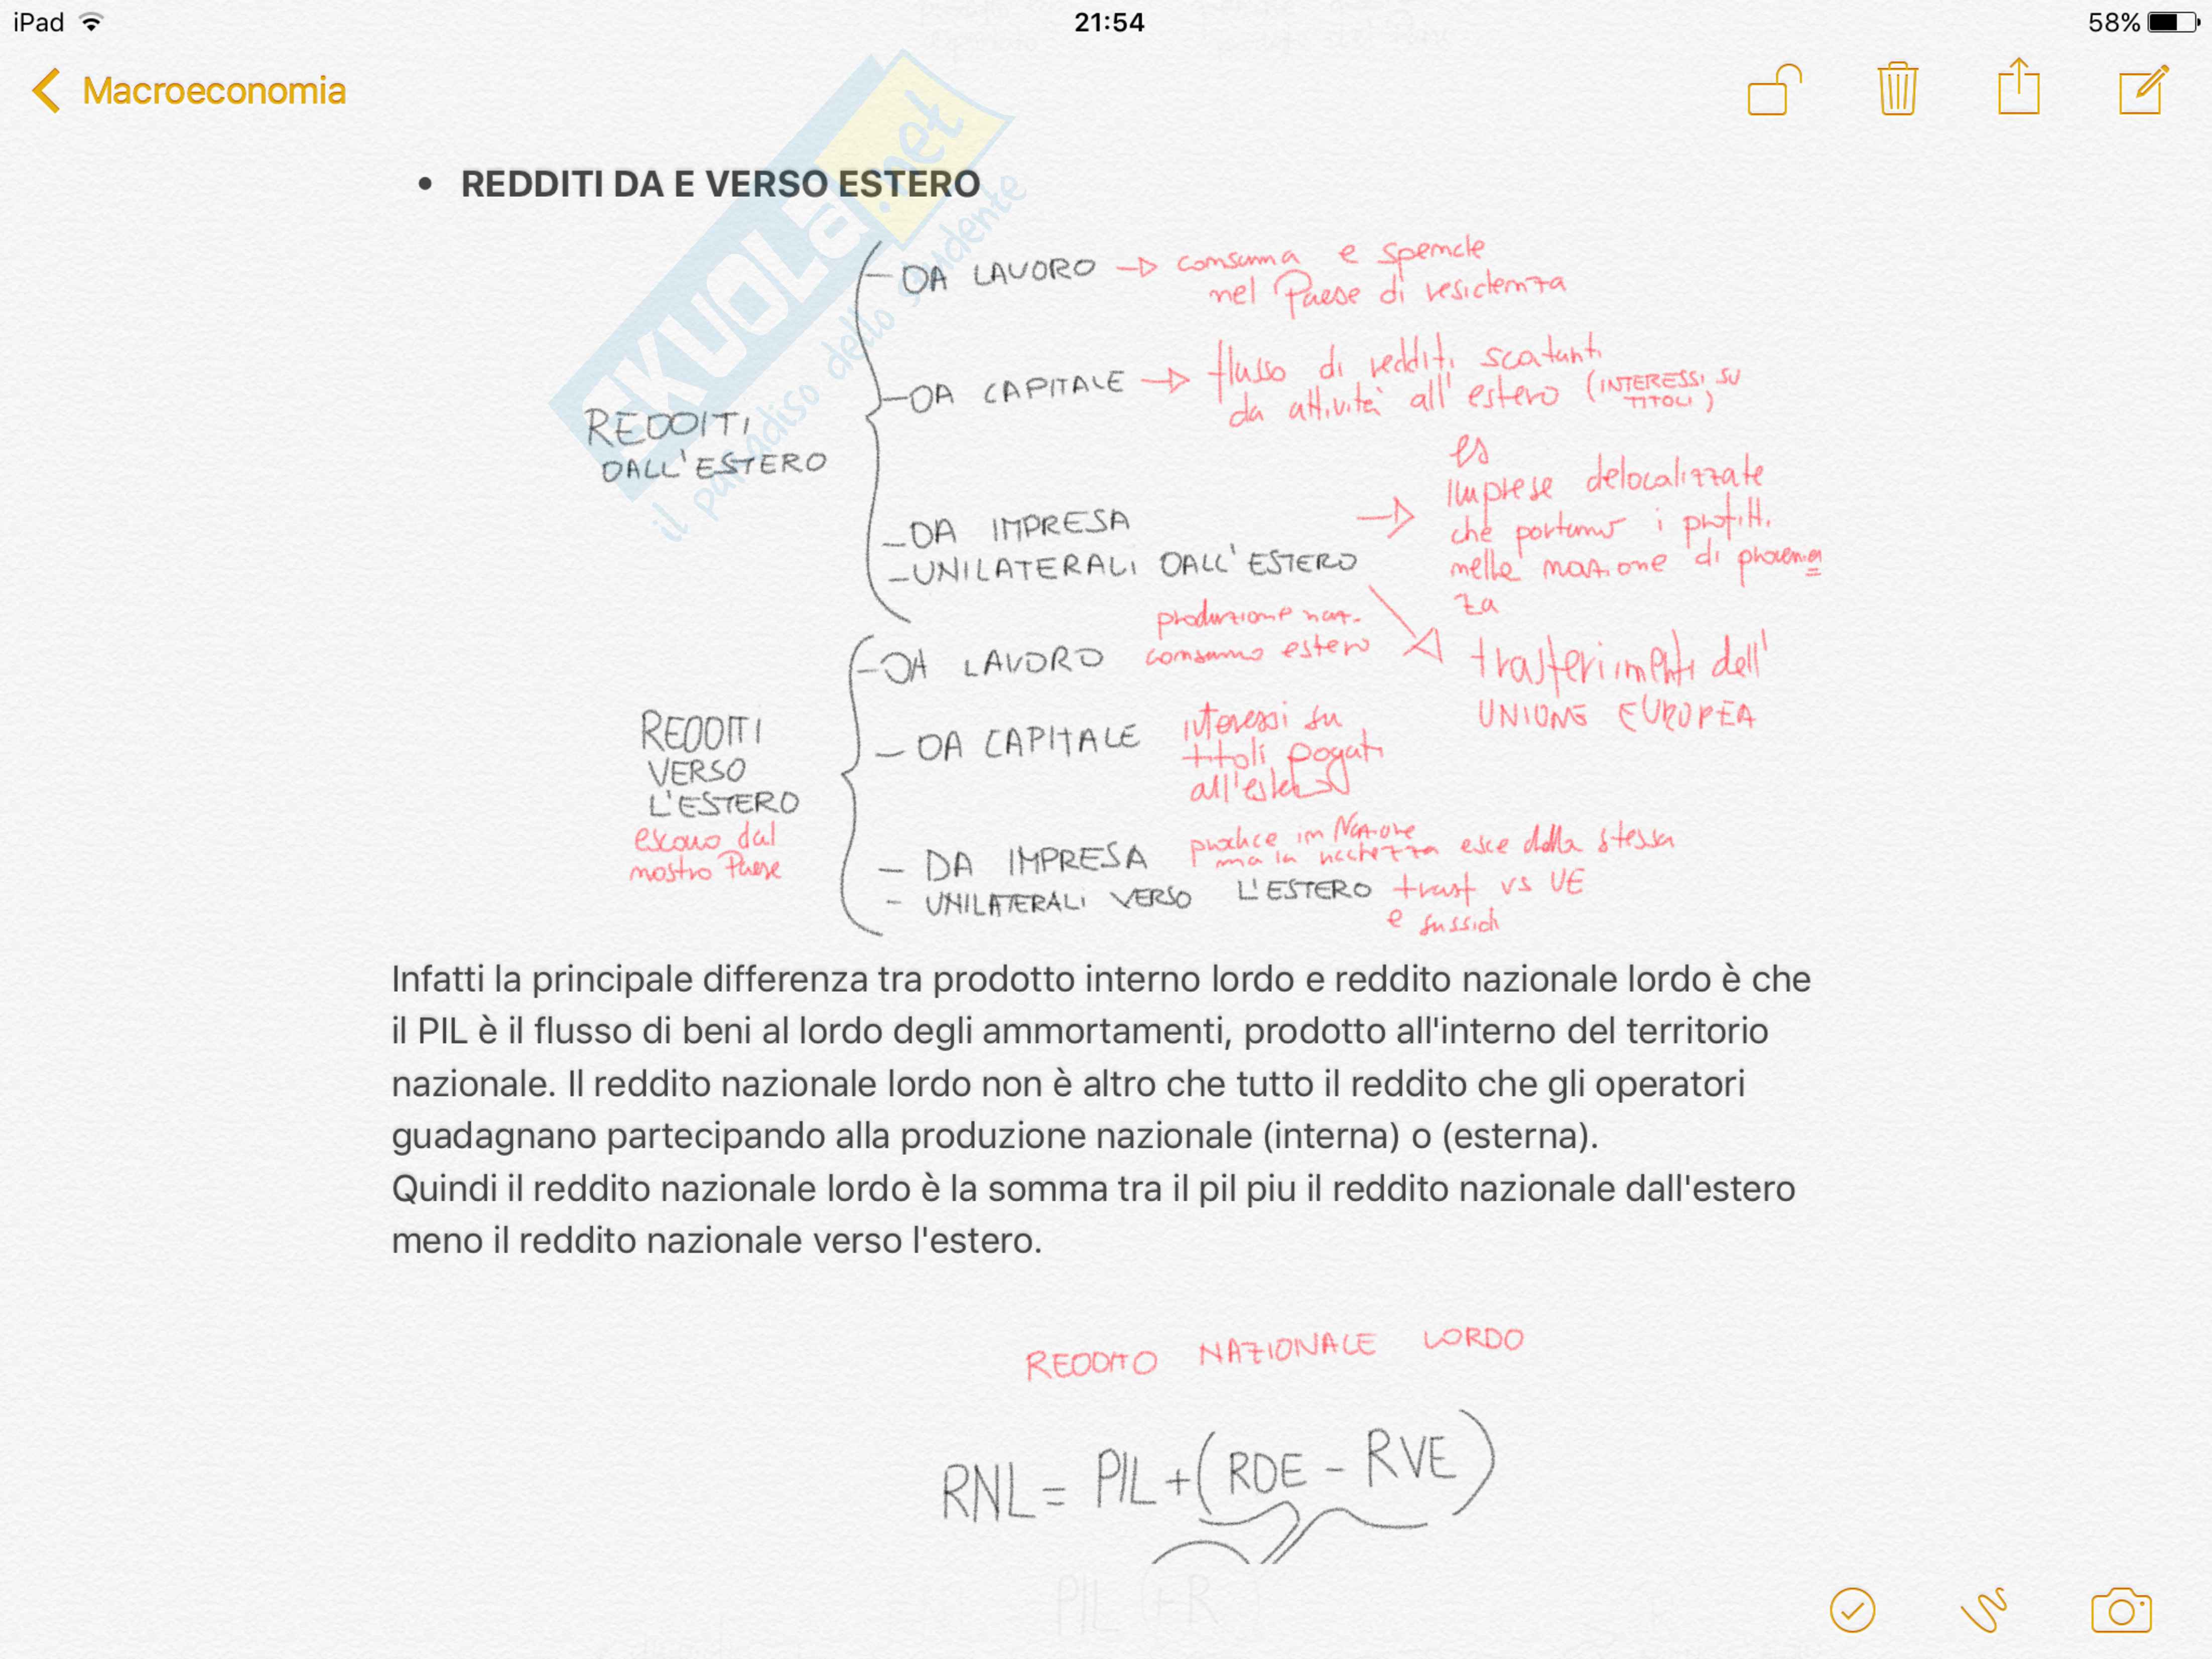 iPad
21:54
58%
Macroeconomia
SKUOLA.net
il paradiso dello studente
• REDDITI DA E VERSO ESTERO
REDDITI
DALL'ESTERO
– DA LAVORO → consuma e spende
nel Paese di residenza
– DA CAPITALE → flusso di redditi scaturiti
da attività all'estero (INTERESSI SU
TITOLI)
– DA IMPRESA
– UNILATERALI DALL'ESTERO
es
imprese delocalizzate
che portano i profitti
nella nazione di provenien=
za
trasferimenti dell'
UNIONE EUROPEA
REDDITI
VERSO
L'ESTERO
escono dal
nostro Paese
– DA LAVORO produzione naz.
consumo estero
– DA CAPITALE interessi su
titoli pagati
all'estero
– DA IMPRESA produce in Nazione
ma la ricchezza esce dalla stessa
– UNILATERALI VERSO L'ESTERO trasf vs UE
e sussidi
Infatti la principale differenza tra prodotto interno lordo e reddito nazionale lordo è che
il PIL è il flusso di beni al lordo degli ammortamenti, prodotto all'interno del territorio
nazionale. Il reddito nazionale lordo non è altro che tutto il reddito che gli operatori
guadagnano partecipando alla produzione nazionale (interna) o (esterna).
Quindi il reddito nazionale lordo è la somma tra il pil piu il reddito nazionale dall'estero
meno il reddito nazionale verso l'estero.
REDDITO NAZIONALE LORDO
RNL = PIL + (RDE – RVE)